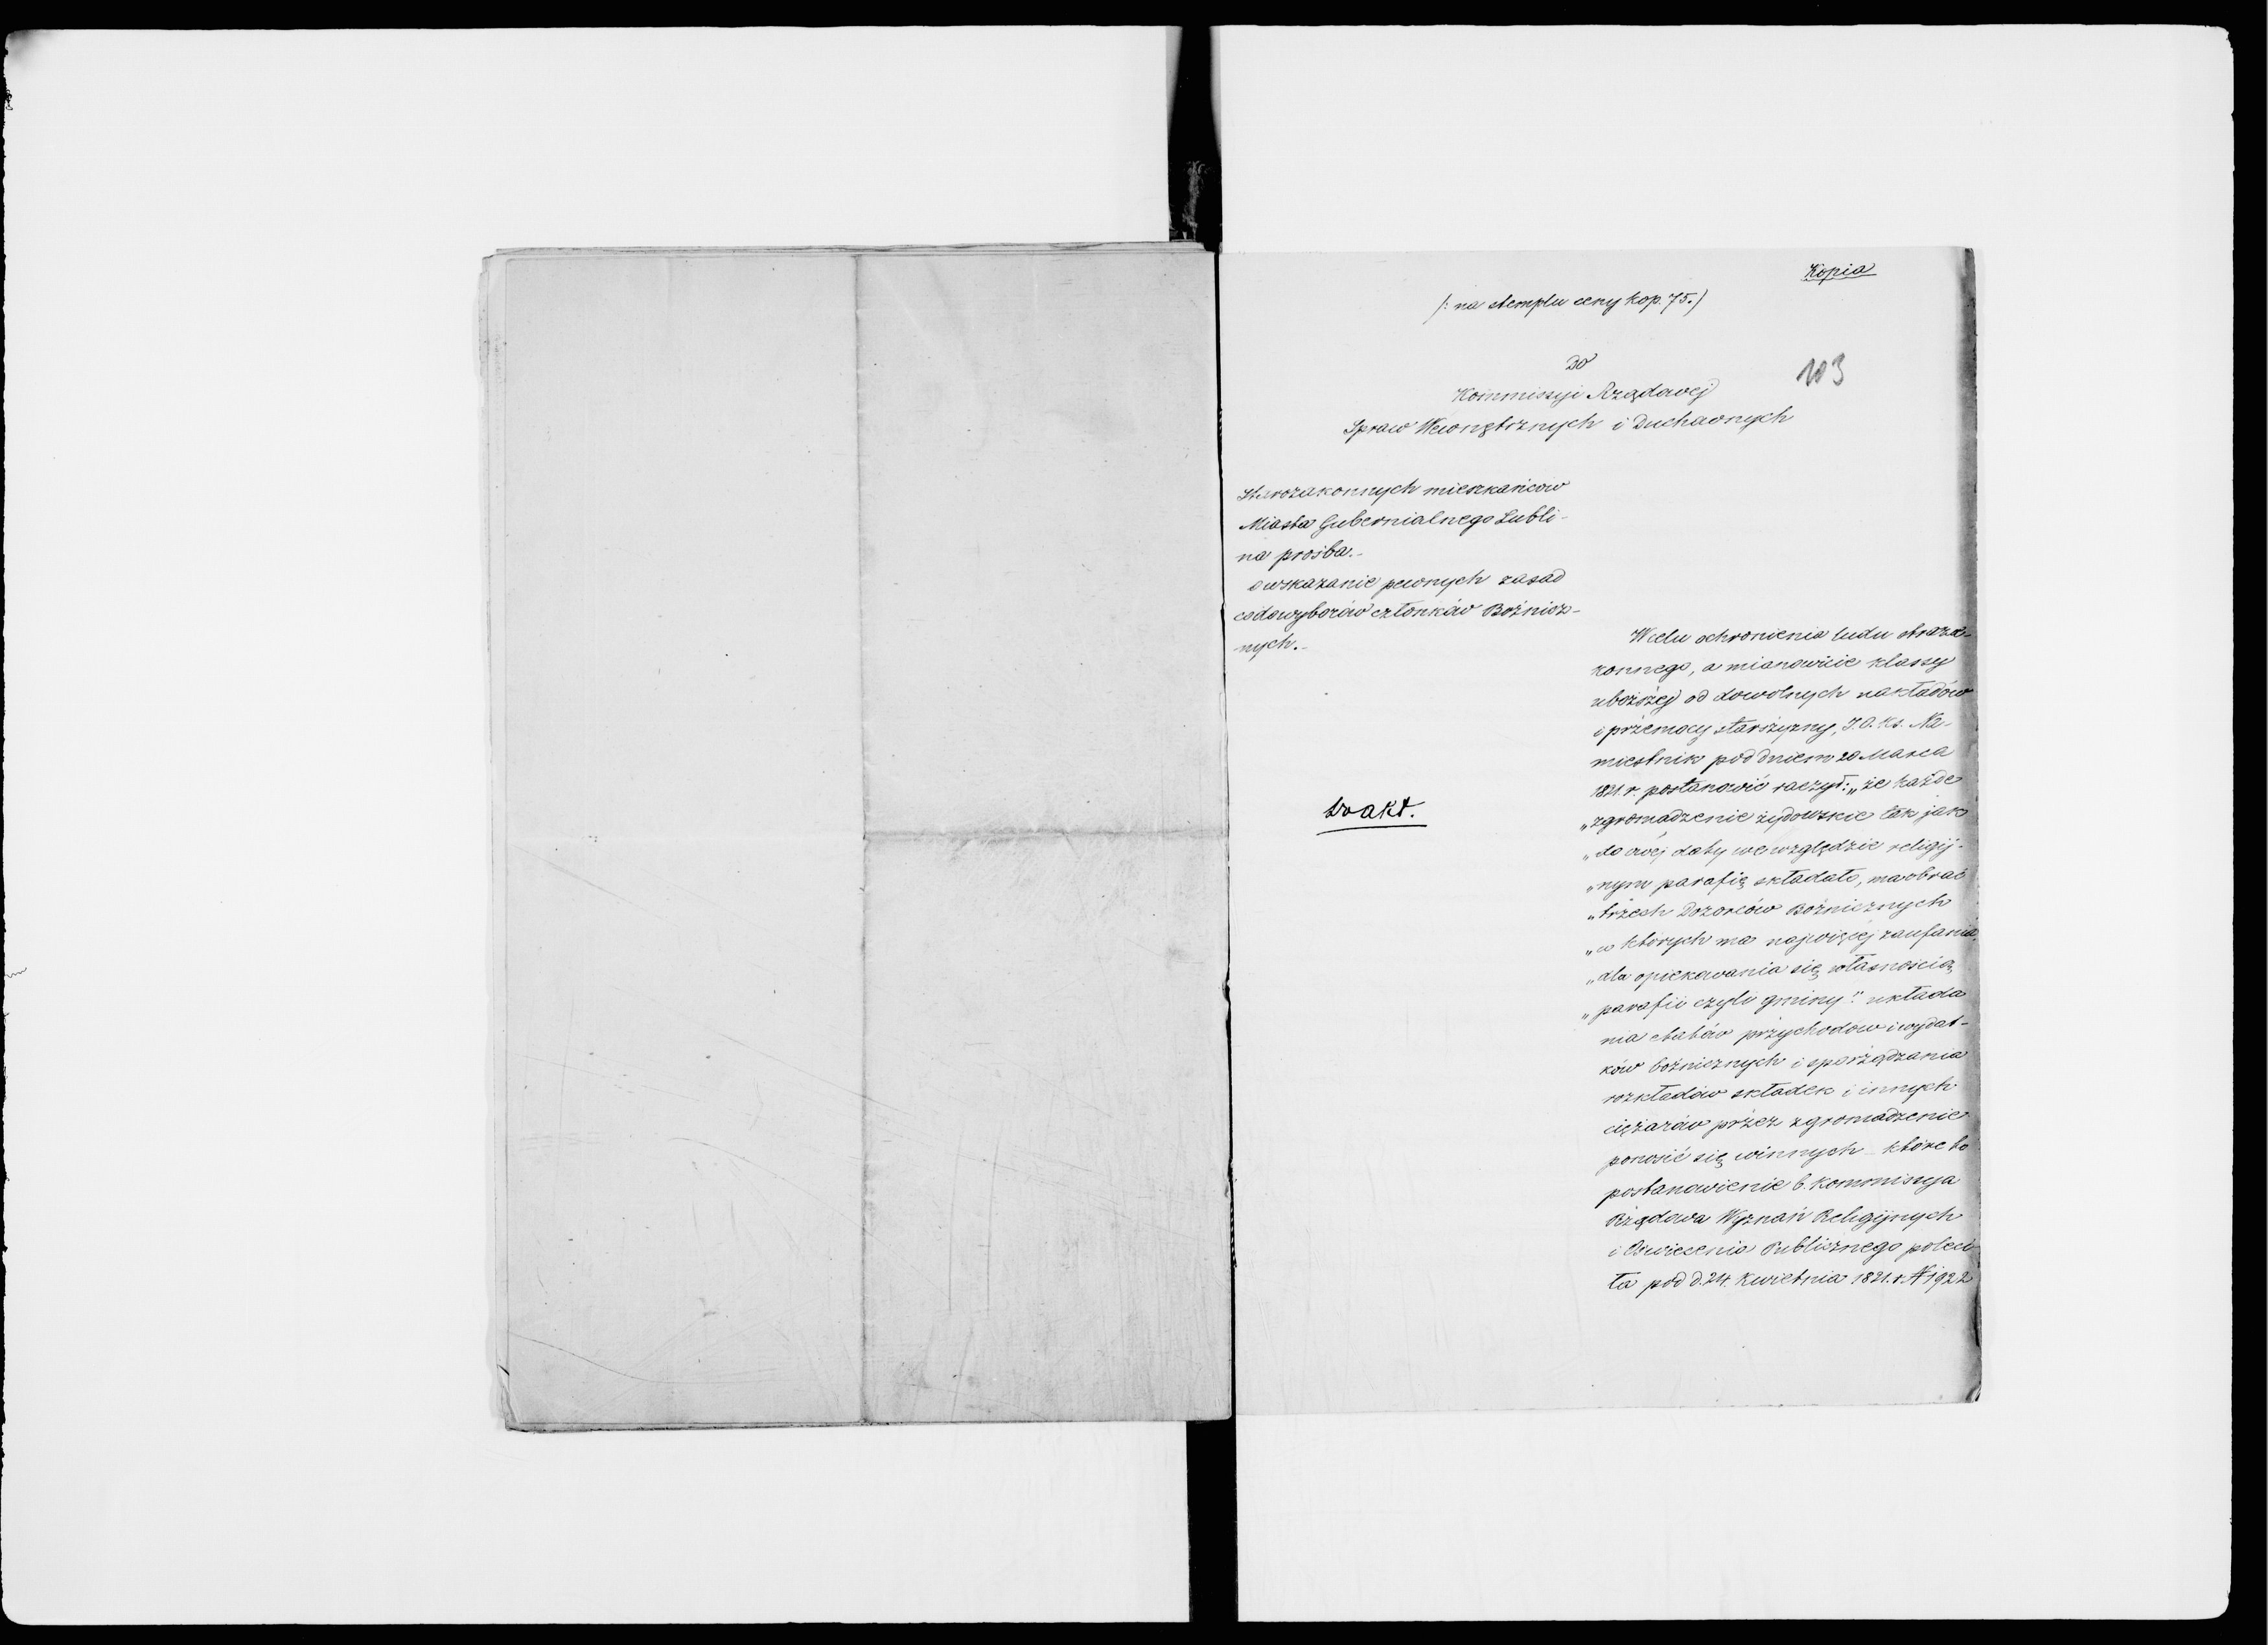 Kopia
/: na stemplu ceny kop. 75./
103
Do
Kommissyi Rządowej
Spraw Wewnętrznych i Duchownych
Starozakonnych mieszkańcow
Miasta Gubernialnego Lubli-
na prośba.-
o wskazanie pewnych zasad
co do wyborów członków Bóźnicz-
nych.-
do akt.
W celu ochronienia ludu staroza-
konnego, a mianowicie klassy
uboższej od dowolnych nakładów
i przemocy starszyzny, J.O. Ks. Na-
miestnik pod dniem 20 Marca
1821. r. postanowić raczył: „że każde
„zgromadzenie żydowskie tak jak
„do owej daty we względzie religij-
„nym parafię składało, ma obrać
„trzech Dozorców Bóżnicznych
„w ktorych ma najwięcej zaufania,
„dla opiekowania się własnością
„parafii czyli gminy". układa
nia etatów przychodów i wydat-
ków bóżnicznych i sporządzania
rozkładów składek i innych
ciężarów przez zgromadzenie
ponosić się winnych – które to
postanowienie b. Kommissya
Rządowa Wyznań Religijnych
i Oświecenia Publicznego poleci
ła pod d. 24. Kwietnia 1821. r. N 1922